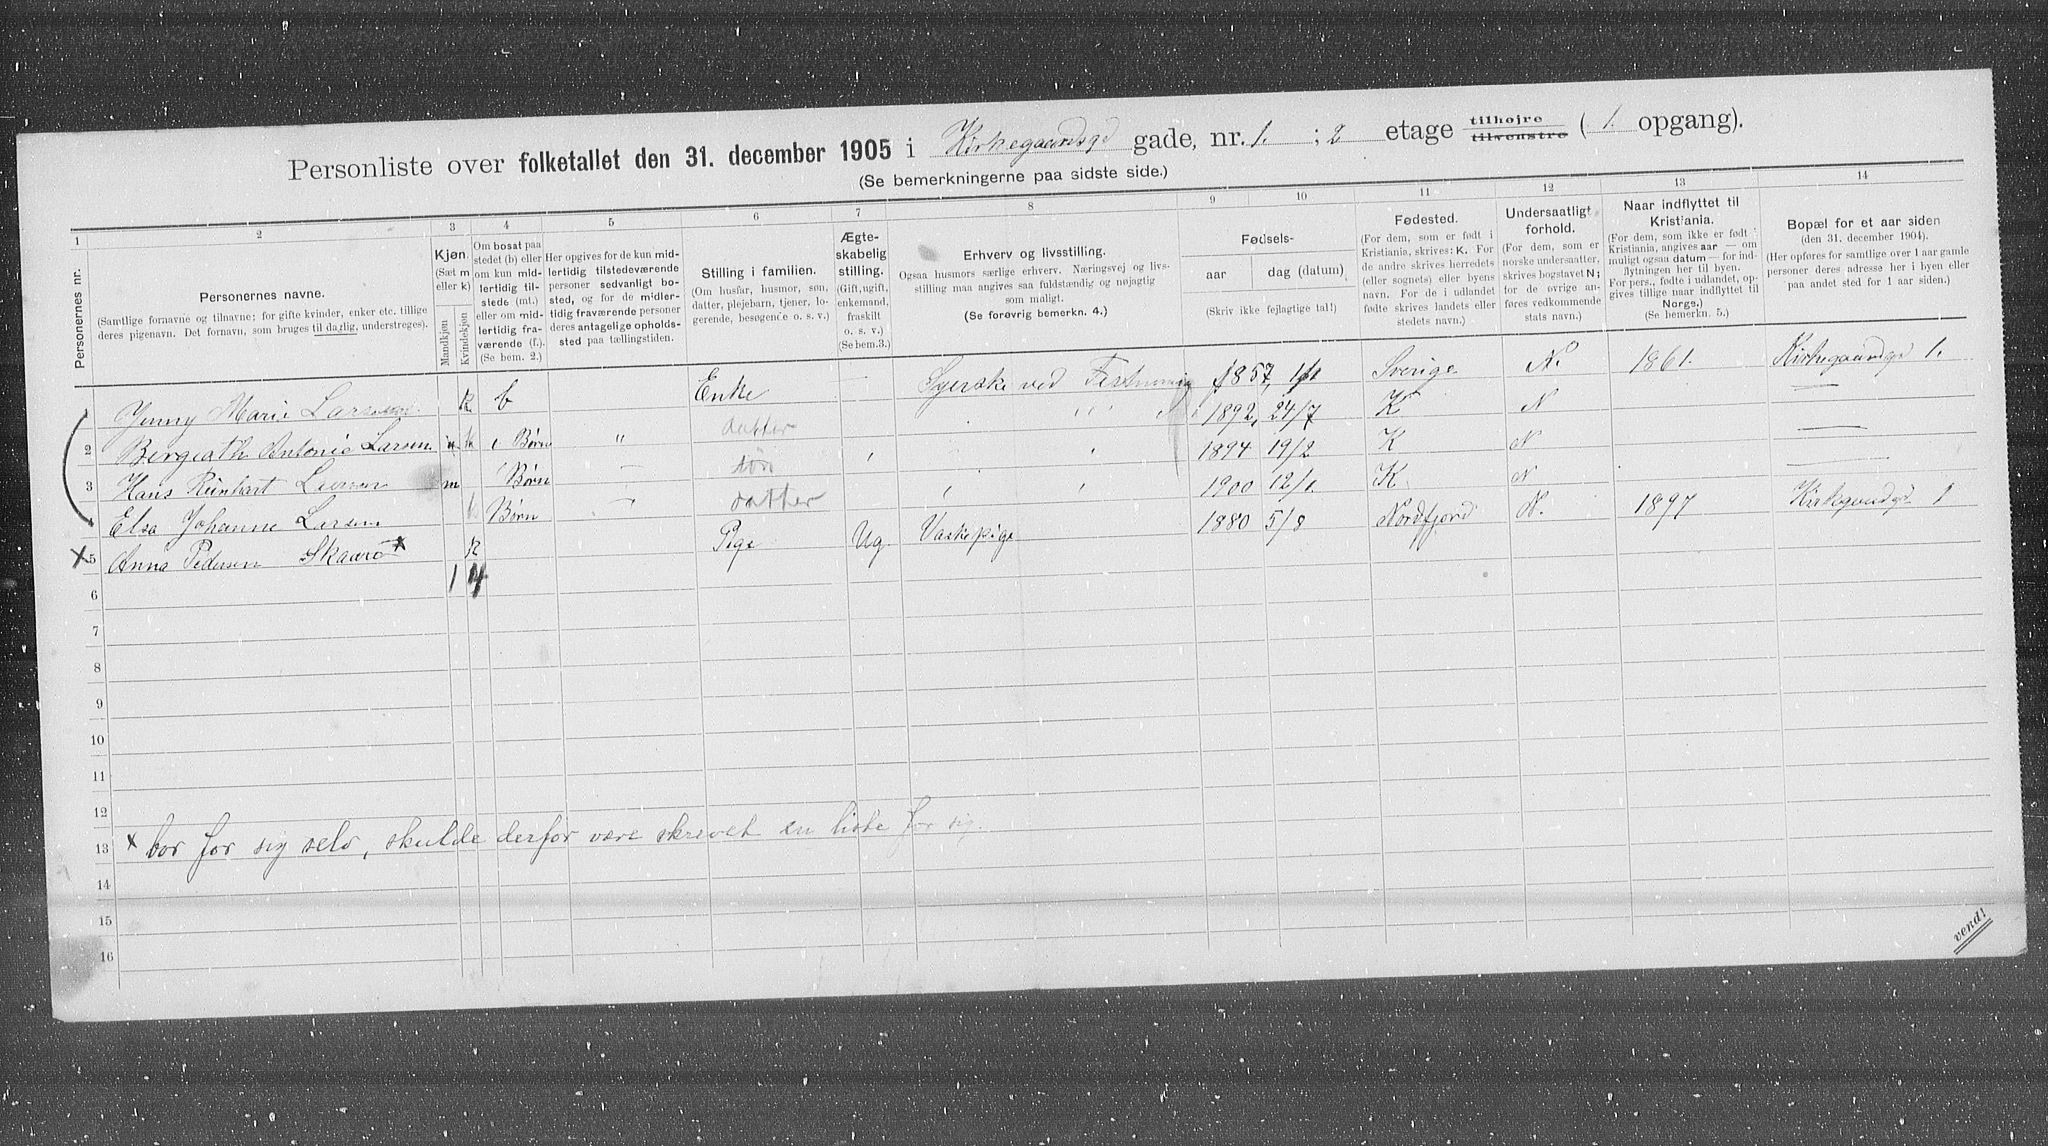 Personliste over folketallet den 31. december 1905 i Kirkegaardsgd gade, nr. 1. ; 2 etage tilhøjre tilvenstre ( 1. opgang).
(Se bemerkningerne paa sidste side.)
1 2 3 4 5 6 7 8 9 10 11 12 13 14
Personernes nr.
Personernes navne.
(Samtlige fornavne og tilnavne; for gifte kvinder, enker etc. tillige
deres pigenavn. Det fornavn, som bruges til daglig, understreges).
Kjøn.
(Sæt m
eller k)
Mandkjøn
Kvindekjøn
Om bosat paa
stedet (b) eller
om kun mid-
lertidig til-
stede (mt.)
eller om mid-
lertidig fra-
værende (f.).
(Se bem. 2.)
Her opgives for de kun mid-
lertidig tilstedeværende
personer sedvanligt bo-
sted, og for de midler-
tidig fraværende personer
deres antagelige opholds-
sted paa tællingstiden.
Stilling i familien.
(Om husfar, husmor, søn,
datter, plejebarn, tjener, lo-
gerende, besøgende o. s. v.)
Ægte-
skabelig
stilling.
(Gift, ugift,
enkemand,
fraskilt
o. s. v.)
(Se bem. 3.)
Erhverv og livsstilling.
Ogsaa husmors særlige erhverv. Næringsvej og livs-
stilling maa angives saa fuldstændig og nøjagtig
som muligt.
(Se forøvrig bemerkn. 4.)
Fødsels-
aar
dag (datum)
(Skriv ikke fejlagtige tal!)
Fødested.
(For dem, som er født i
Kristiania, skrives: K. For
de andre skrives herredets
(eller sognets) eller byens
navn. For de i udlandet
fødte skrives landets eller
stedets navn.)
Undersaatligt
forhold.
(For dem, som er
norske undersaatter,
skrives bogstavet N;
for de øvrige an-
føres vedkommende
stats navn.)
Naar indflyttet til
Kristiania.
(For dem, som ikke er født i
Kristiania, angives aar — om
muligt ogsaa datum — for ind-
flytningen her til byen.
For pers., fødte i udlandet, op-
gives tillige naar indflyttet til
Norge.)
(Se bemerkn. 5.)
Bopæl for et aar siden
(den 31. december 1904).
(Her opføres for samtlige over 1 aar gamle
personer deres adresse her i byen eller
paa andet sted for 1 aar siden.)
1 Jenny Marie Larsen k b Enke — Syerske ved 1857, 1/1 Sverige N. 1861. Kirkegaardsgd 1.
2 Antonie Larsen k Børn " datter 1892, 24/7 K N —
3 Hans Reinhart Larsen m Børn søn 1894 19/2 K N —
4 Elsa Johanne Larsen k Børn datter 1900 12/1. K. N —
x 5 Anna Pedersen Skaarø x k Pige Ug Vaskepige 1880 5/8 Nordfjord N. 1897 Kirkegaardsgd 1
6 1 4
7
8
9
10
11
12
13 x bor for sig selv, skulde derfor være skrevet en liste for sig.
14
15
16
vend!